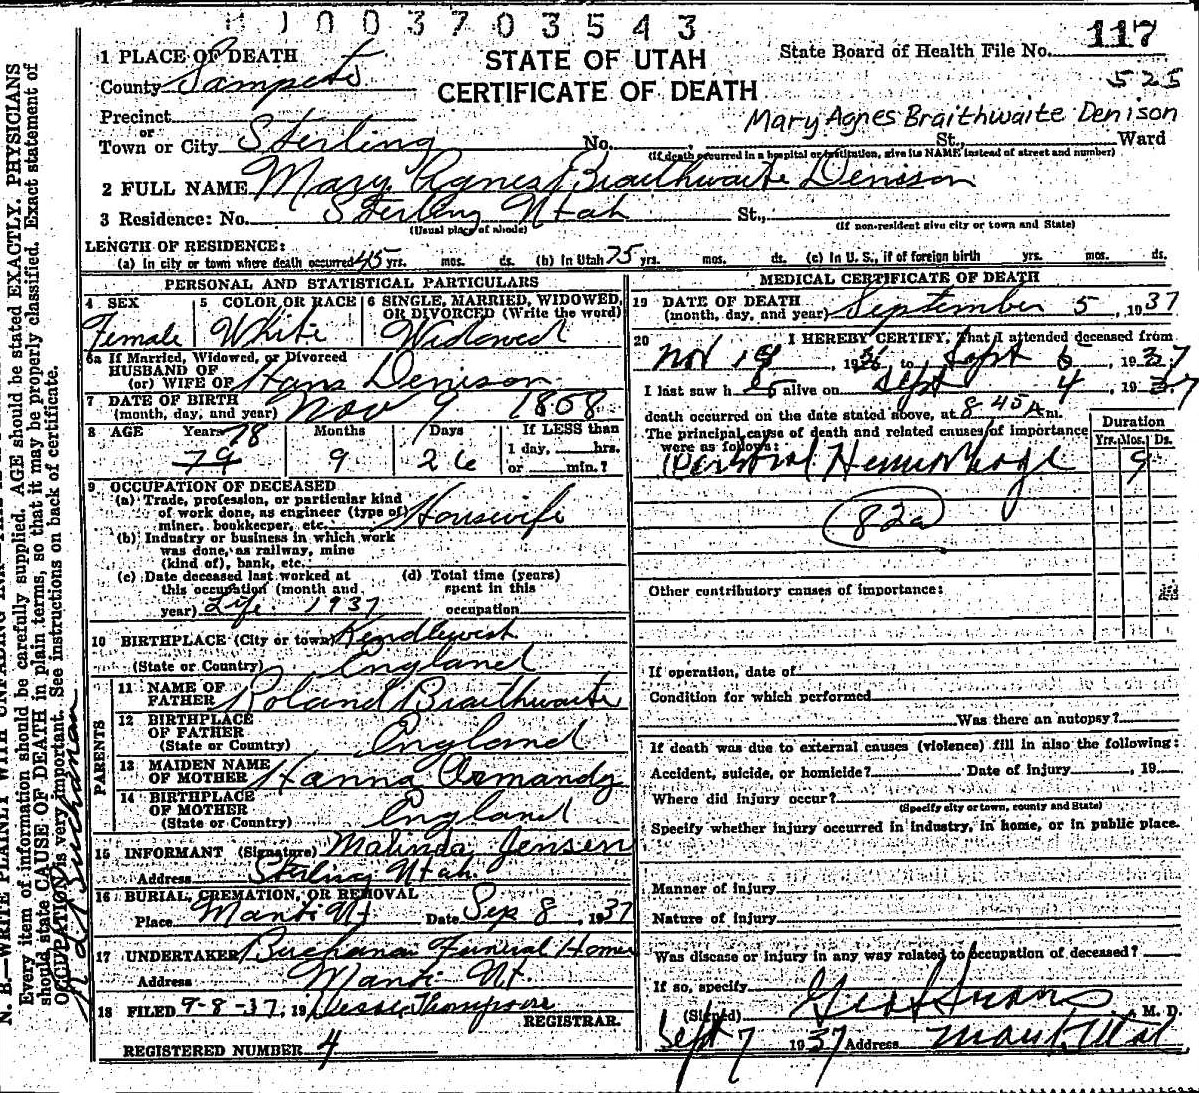 H 1 0 0 3 7 0 3 5 4 3
STATE OF UTAH
CERTIFICATE OF DEATH
State Board of Health File No. 117
525
Mary Agnes Braithwaite Denison
1 PLACE OF DEATH
County Sampete
Precinct
or
Town or City Sterling No. St., Ward
(If death occurred in a hospital or institution, give its NAME instead of street and number)
2 FULL NAME Mary Agnes Braithwaite Denison
3 Residence: No. Sterling Utah St.,
(Usual place of abode) (If non-resident give city or town and State)
LENGTH OF RESIDENCE:
(a) In city or town where death occurred 45 yrs. mos. ds. (b) In Utah 75 yrs. mos. ds. (c) In U. S., if of foreign birth yrs. mos. ds.
PERSONAL AND STATISTICAL PARTICULARS
4 SEX Female
5 COLOR OR RACE White
6 SINGLE, MARRIED, WIDOWED, OR DIVORCED (Write the word) Widowed
6a If Married, Widowed, or Divorced
HUSBAND OF
(or) WIFE OF Hans Denison
7 DATE OF BIRTH
(month, day, and year) Nov 9 1858
8 AGE Years 78 Months Days If LESS than
79 9 26 1 day, hrs.
or min.?
9 OCCUPATION OF DECEASED
(a) Trade, profession, or particular kind
of work done, as engineer (type of)
miner, bookkeeper, etc. Housewife
(b) Industry or business in which work
was done, as railway, mine
(kind of), bank, etc.
(c) Date deceased last worked at
this occupation (month and
year) Life 1937
(d) Total time (years)
spent in this
occupation
10 BIRTHPLACE (City or town)
(State or Country) England
PARENTS
11 NAME OF
FATHER Roland Braithwaite
12 BIRTHPLACE
OF FATHER
(State or Country) England
13 MAIDEN NAME
OF MOTHER Hanna
14 BIRTHPLACE
OF MOTHER
(State or Country) England
15 INFORMANT (Signature) Malinda Jensen
Address Sterling Utah
16 BURIAL, CREMATION, OR REMOVAL
Place Manti Ut Date Sep 8, 1937
17 UNDERTAKER Buchanan Funeral Home
Address Manti Ut.
18 FILED 9-8-37, 19 Jesse Thompson
REGISTRAR.
REGISTERED NUMBER 4
MEDICAL CERTIFICATE OF DEATH
19 DATE OF DEATH
(month, day, and year) September 5, 1937
20 I HEREBY CERTIFY, That I attended deceased from
Nov 19, 1936 to Sept 5, 1937
I last saw her alive on Sept 4, 1937
death occurred on the date stated above, at 8-45 A m.
The principal cause of death and related causes of importance
were as follows:
Duration
Yrs. Mos. Ds.
Hemorrhage 9
82a
Other contributory causes of importance:
If operation, date of
Condition for which performed
Was there an autopsy?
If death was due to external causes (violence) fill in also the following:
Accident, suicide, or homicide? Date of injury, 19
Where did injury occur?
(Specify city or town, county and State)
Specify whether injury occurred in industry, in home, or in public place.
Manner of injury
Nature of injury
Was disease or injury in any way related to occupation of deceased?
If so, specify
(Signed) M. D.
Sept 7 1937 Address Manti, Utah
N. B.—WRITE PLAINLY WITH UNFADING INK
Every item of information should be carefully supplied. AGE should be stated EXACTLY. PHYSICIANS
should state CAUSE OF DEATH in plain terms, so that it may be properly classified. Exact statement of
OCCUPATION is very important. See instructions on back of certificate.
Buchanan